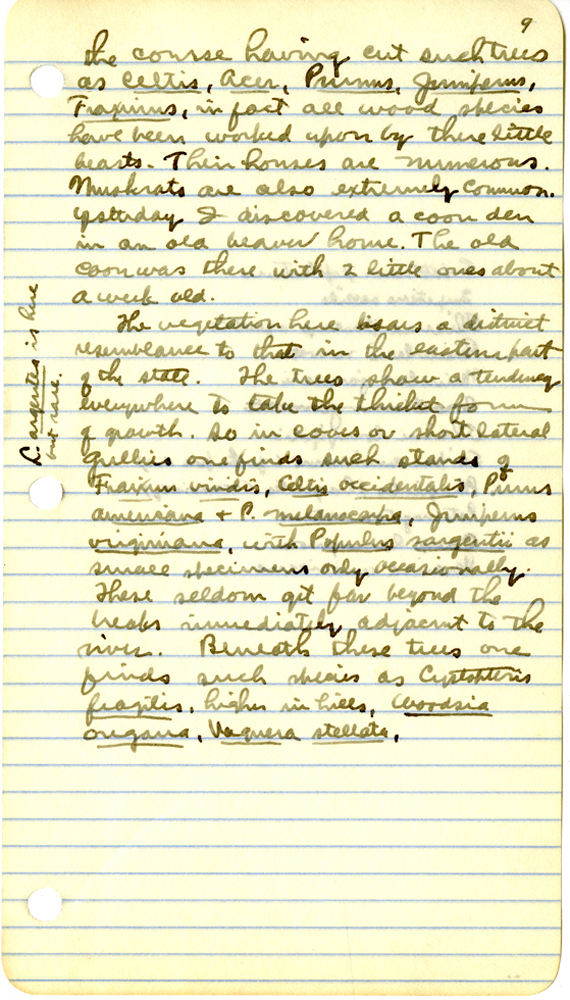 9
the course having cut such trees
as Celtis, Acer, Prunus, Juniperus,
Fraxinus, in fact all wood species
have been worked upon by these little
beasts. Their houses are numerous.
Muskrats are also extremely common.
Yesterday I discovered a coon den
in an old beaver home. The old
coon was there with 2 little ones about
a week old.
The vegetation here bears a district
resemblance to that in the eastern part
of the state. The trees show a tendency
everywhere to take the thicket form
of growth. So in coves or short lateral
gullies one finds such stands of
Fraxinus viridis, Celtis occidentalis, Prunus
americana + P. melanocarpa, Juniperus
virginiana, with Populus sargentii as
small specimens only occasionally.
These seldom get far beyond the
breaks immediately adjacent to the
river. Beneath these trees one
finds such species as Cystopteris
fragilis, higher in hills, Woodsia
oregana, Vagnera stellata,
L. argentea is here
but rare.